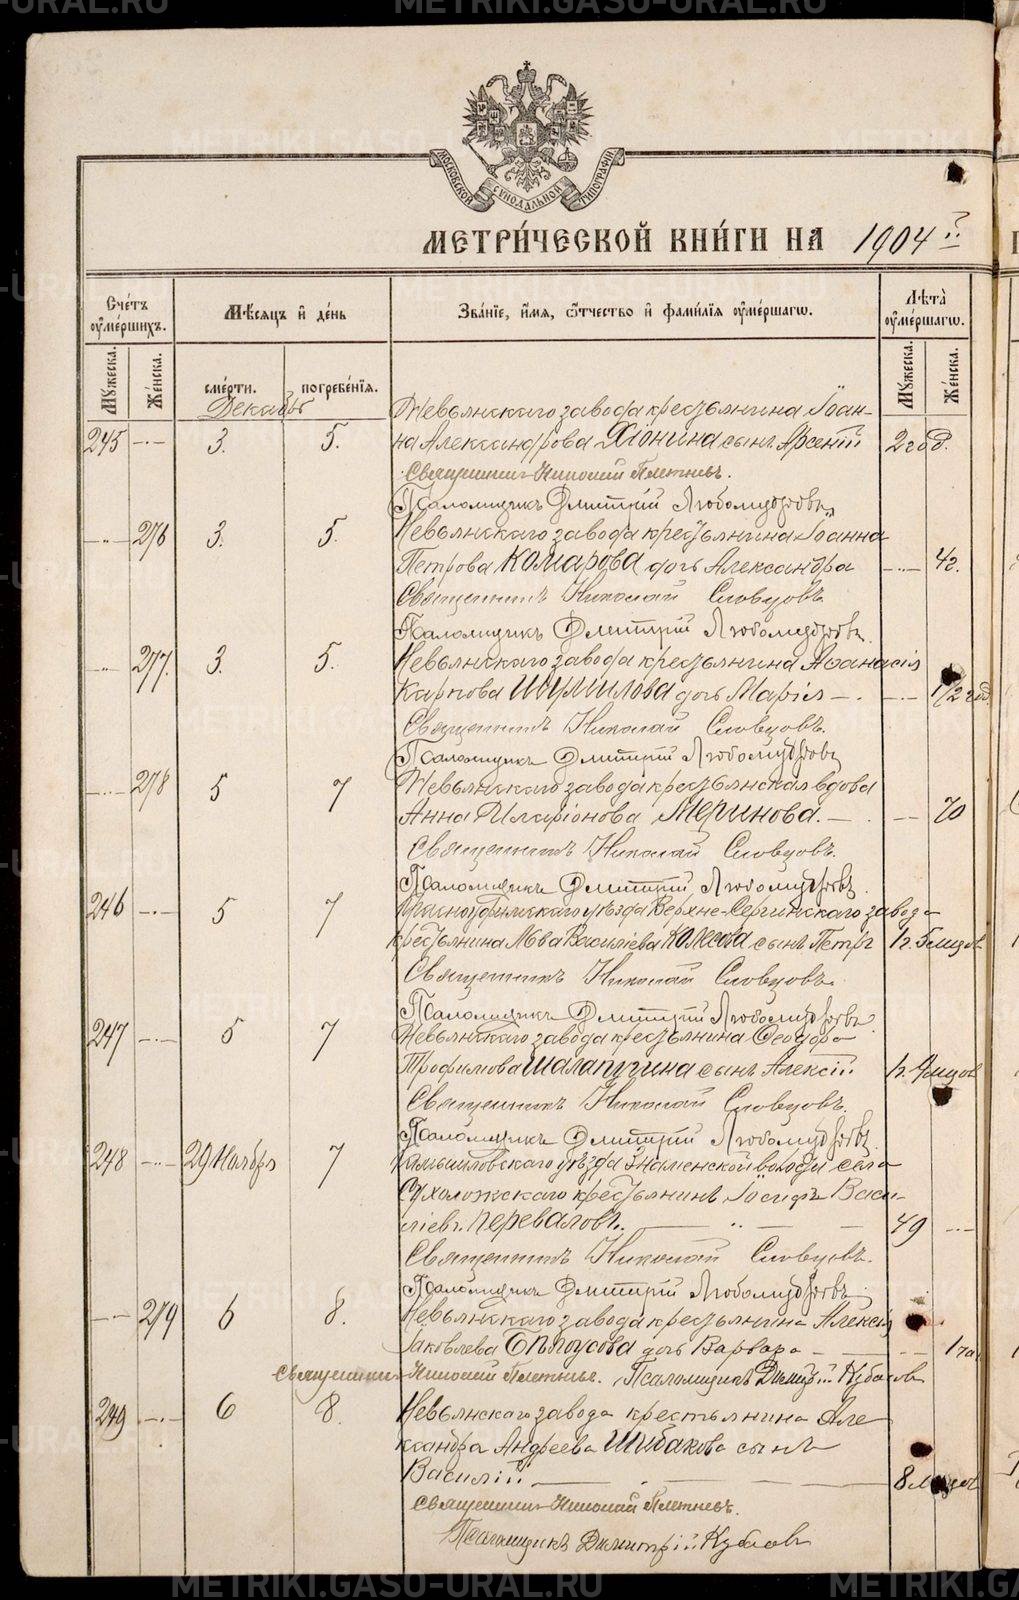 METRIKI.GASO-URAL.RU
МОСКОВСКОЙ СѴНОДАЛЬНОЙ ТИПОГРАФІИ
МЕТРИ́ЧЕСКОЙ КНИ́ГИ НА 1904 г.
Сче́тъ оу҆ме́ршихъ.
Мѣ́сяцъ и҆ де́нь
Зва́нїе, и҆́мя, ѻ҆́тчество и҆ фами́лїя оу҆ме́ршагѡ.
Лѣ́та оу҆ме́ршагѡ.
Му́жеска.
Же́нска.
сме́рти.
погребе́нїя.
Му́жеска.
Же́нска.
Декабрь
Невьянскаго завода крестьянина Іоан-
245 3. 5. на Александрова Хіонина сынъ Арсеній 2 год.
Священникъ Николай Плетневъ.
Псаломщикъ Дмитрій Любомудровъ
276 3. 5. Невьянскаго завода крестьянина Іоанна
Петрова Комарова дочь Александра 4 г.
Священникъ Николай Словцовъ
Псаломщикъ Дмитрій Любомудровъ.
277. 3. 5. Невьянскаго завода крестьянина Аѳанасія
Карпова Шумилова дочь Марія 1/2 год.
Священникъ Николай Словцовъ.
Псаломщикъ Дмитрій Любомудровъ
278 5 7 Невьянскаго завода крестьянская вдова
Анна Иларіонова Меринова. 70
Священникъ Николай Словцовъ.
Псаломщикъ Дмитрій Любомудровъ.
246 5 7 Красноуфимскаго уѣзда Верхне-Сергинскаго завода
крестьянина Льва Васильева Колесова сынъ Петръ 5 мцов
Священникъ Николай Словцовъ.
Псаломщикъ Дмитрій Любомудровъ.
247 5 7 Невьянскаго завода крестьянина Ѳеодора
Трофимова Шалапугина сынъ Алексій мцов
Священникъ Николай Словцовъ.
Псаломщикъ Дмитрій Любомудровъ.
248 29 Ноября 7 Камышловскаго уѣзда Знаменской волости села
Сухоложскаго крестьянинъ Іосифъ Васи-
ліевъ Переваловъ. 49
Священникъ Николай Словцовъ.
Псаломщикъ Дмитрій Любомудровъ
279 6 8. Невьянскаго завода крестьянина Алексія
Яковлева Бѣлоусова дочь Варвара 1 год
Священникъ Николай Плетневъ. Псаломщикъ Димитрій Кубасов
249 6 8. Невьянскаго завода крестьянина Але
ксандра Андреева Шибакова сынъ
Василій 8 мцов
Священникъ Николай Плетневъ.
Псаломщикъ Димитрій Кубасов
METRIKI.GASO-URAL.RU